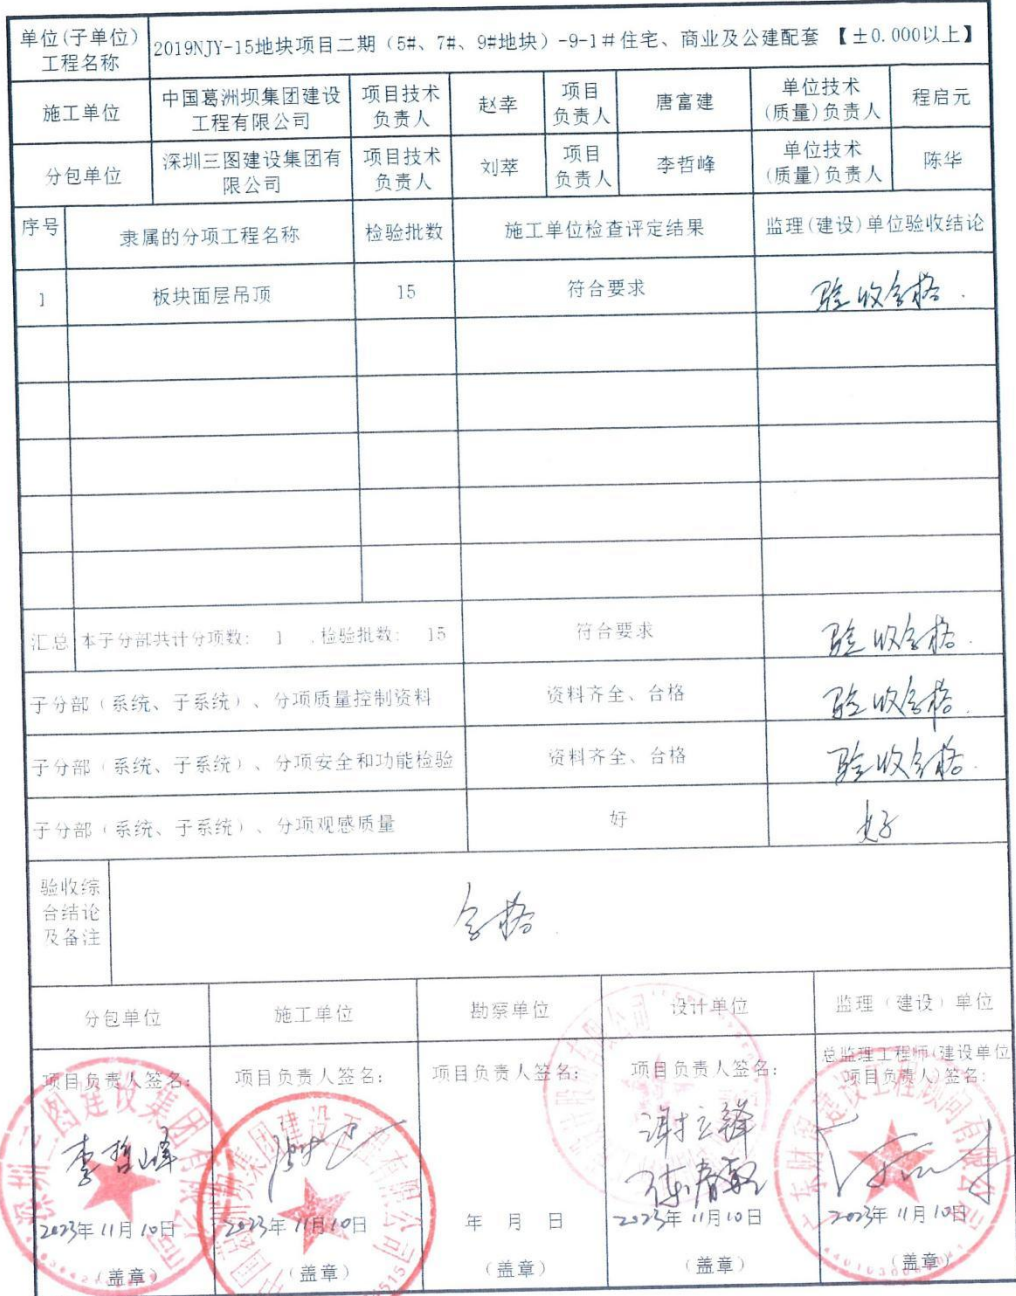 单位(子单位)
工程名称
2019NJY-15地块项目二期（5#、7#、9#地块）-9-1#住宅、商业及公建配套 【±0.000以上】
施工单位
中国葛洲坝集团建设
工程有限公司
项目技术
负责人
赵幸
项目
负责人
唐富建
单位技术
(质量)负责人
程启元
分包单位
深圳三图建设集团有
限公司
项目技术
负责人
刘萃
项目
负责人
李哲峰
单位技术
(质量)负责人
陈华
序号
隶属的分项工程名称
检验批数
施工单位检查评定结果
监理(建设)单位验收结论
1
板块面层吊顶
15
符合要求
验收合格.
汇总
本子分部共计分项数: 1 ,检验批数: 15
符合要求
验收合格.
子分部（系统、子系统）、分项质量控制资料
资料齐全、合格
验收合格.
子分部（系统、子系统）、分项安全和功能检验
资料齐全、合格
验收合格.
子分部（系统、子系统）、分项观感质量
好
好
验收综
合结论
及备注
合格.
分包单位
施工单位
勘察单位
设计单位
监理（建设）单位
项目负责人签名:
李哲峰
2023年11月10日
(盖章)
项目负责人签名:
2023年11月10日
(盖章)
项目负责人签名:
年 月 日
(盖章)
项目负责人签名:
2023年11月10日
(盖章)
总监理工程师(建设单位
项目负责人)签名:
2023年11月10日
(盖章)
深圳三图建设集团有限公司